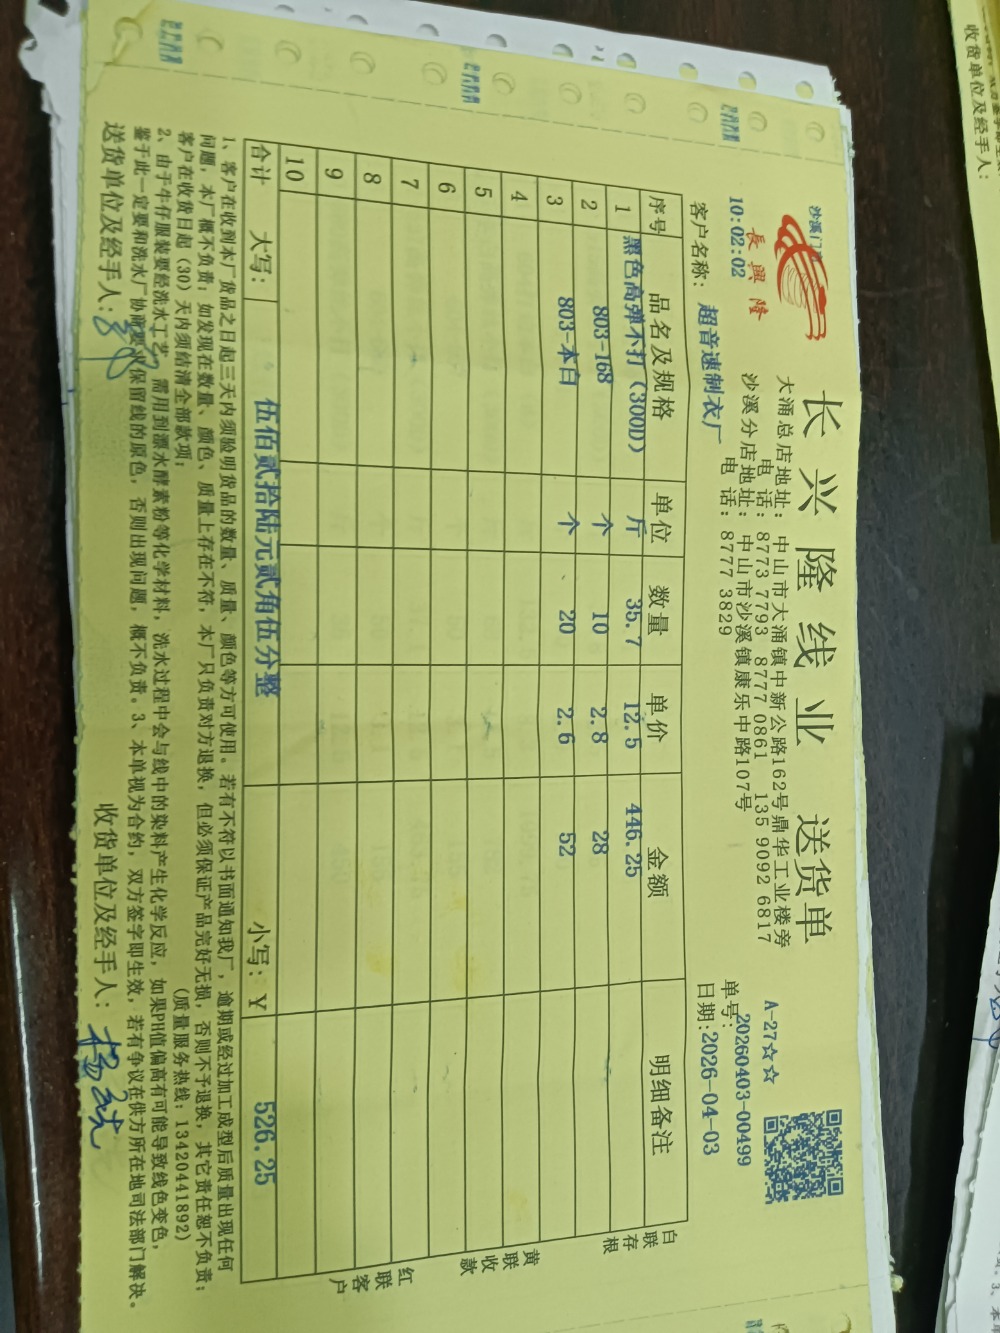 长兴隆线业 送货单
長興隆
沙溪门
10:02:02
大涌总店地址:中山市大涌镇中新公路162号鼎华工业楼旁
电 话:8773 7793 8777 0861 135 9092 6817
沙溪分店地址:中山市沙溪镇康乐中路107号
电 话:8777 3829
A-27☆☆
单号:20260403-00499
客户名称: 超音速制衣厂
日期:2026-04-03
序号 品名及规格 单位 数量 单价 金额 明细备注
1 黑色高弹不打(300D) 斤 35.7 12.5 446.25
2 803-168 个 10 2.8 28
3 803-本白 个 20 2.6 52
4
5
6
7
8
9
10
合计 大写: 伍佰贰拾陆元贰角伍分整 小写:¥ 526.25
白联存根
黄联收款
红联客户
1、客户在收到本厂货品之日起三天内须验明货品的数量、质量、颜色等方可使用。若有不符以书面通知我厂,逾期或经过加工成型后质量出现任何
问题,本厂概不负责;如发现在数量、颜色、质量上存在不符,本厂只负责对方退换,但必须保证产品完好无损,否则不予退换,其它责任恕不负责;
客户在收货日起(30)天内须结清全部款项; (质量服务热线:13420441892)
2、由于牛仔服装要经洗水工艺,需用到漂水酵素粉等化学材料,洗水过程中会与线中的染料产生化学反应,如果PH值偏高有可能导致线色变色,
鉴于此一定要和洗水厂协商要求保留线的原色,否则出现问题,概不负责。3、本单视为合约,双方签字即生效,若有争议在供方所在地司法部门解决。
送货单位及经手人: 收货单位及经手人:
收货单位及经手人: